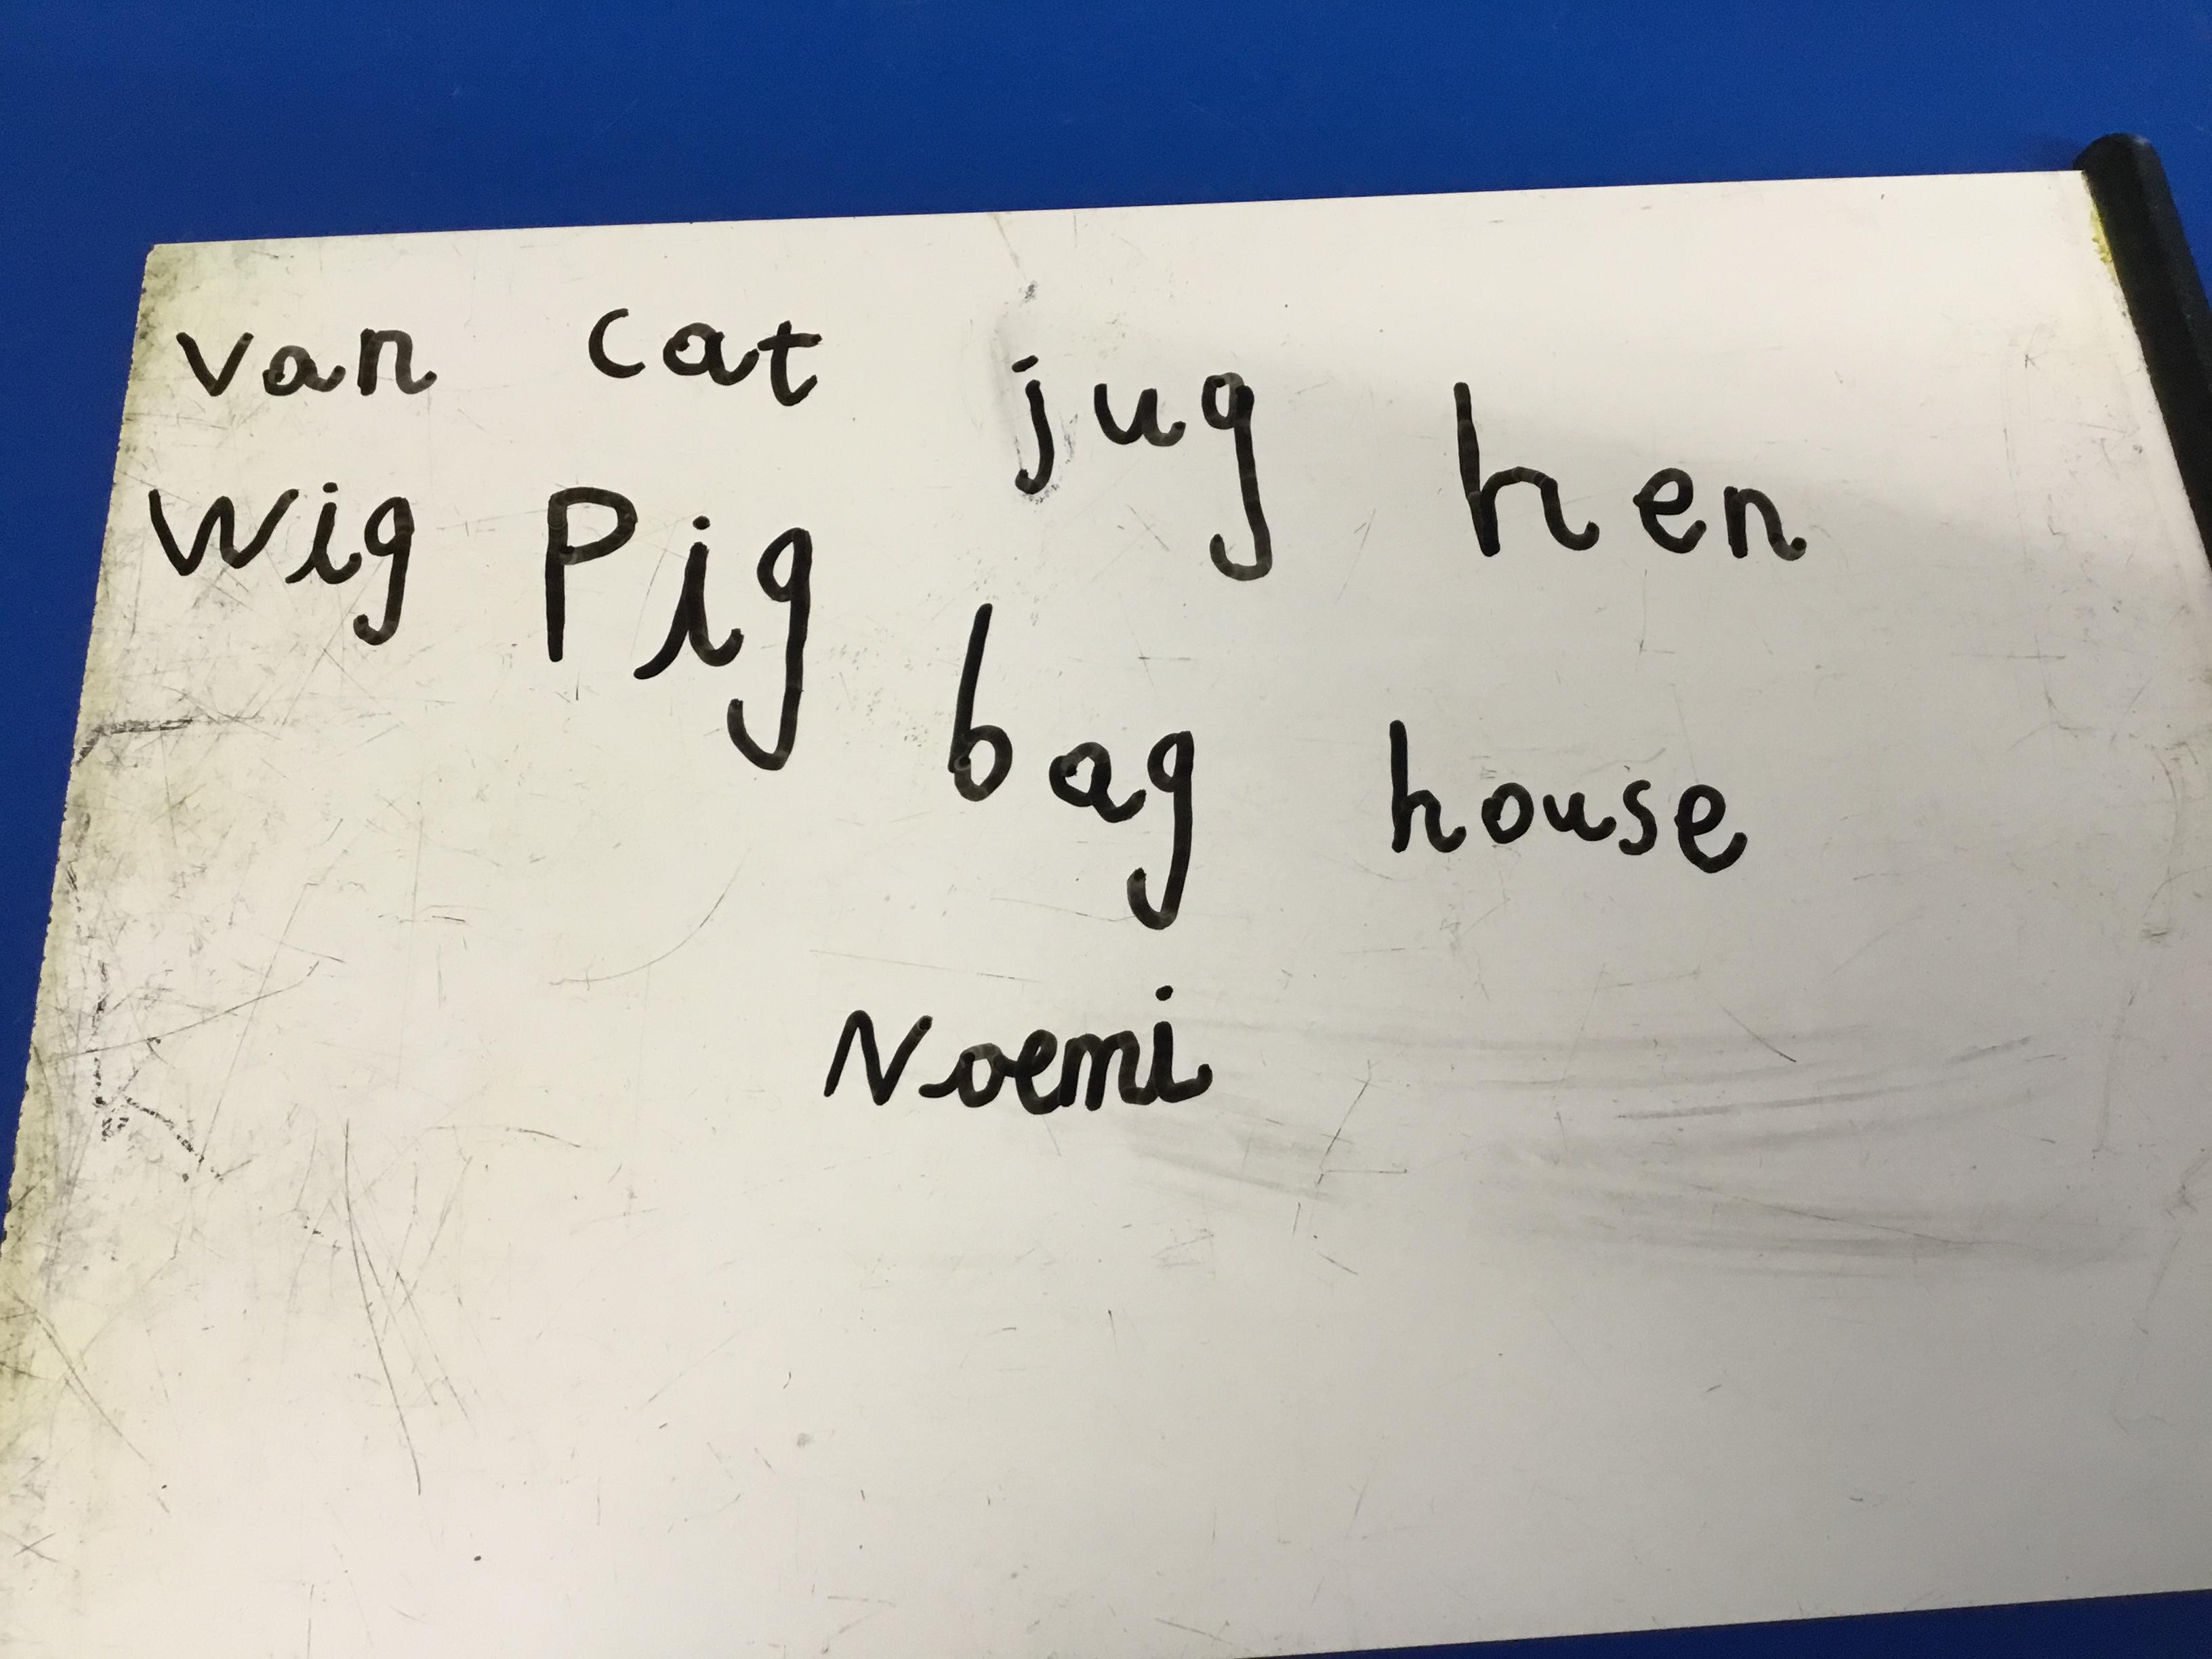 van cat jug hen
wig Pig bag house
Noemi